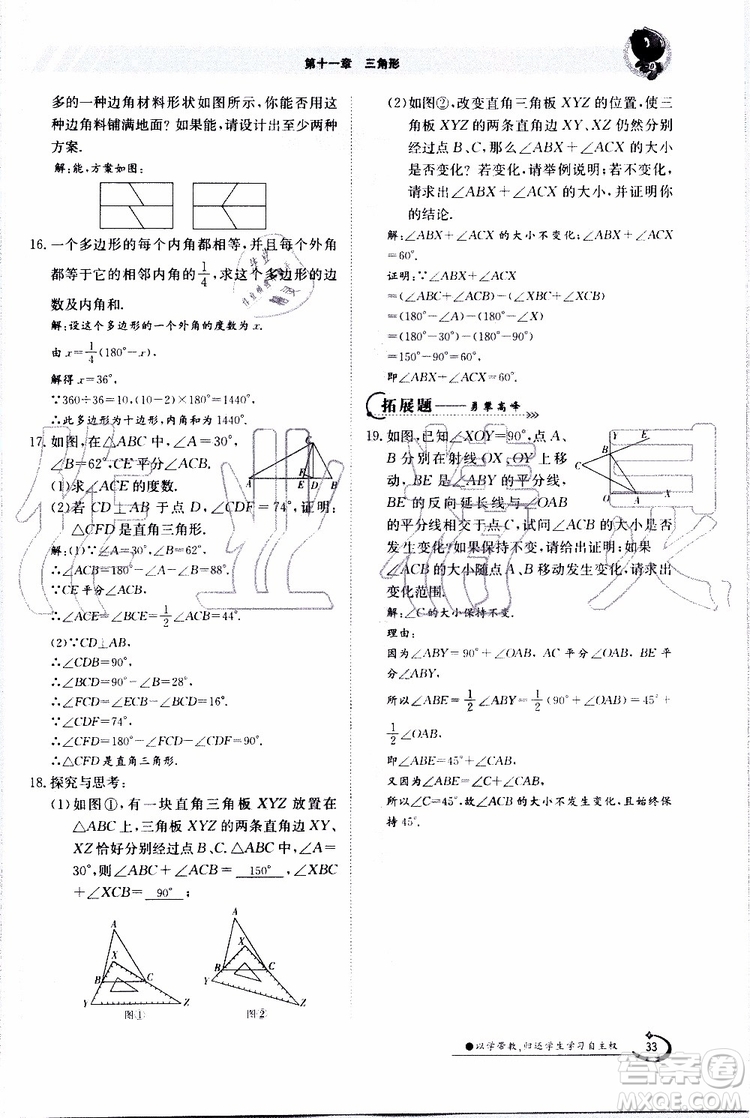 第十一章 三角形
多的一种边角材料形状如图所示,你能否用这
种边角料铺满地面?如果能,请设计出至少两种
方案.
解:能,方案如图:
16. 一个多边形的每个内角都相等,并且每个外角
都等于它的相邻内角的1/4,求这个多边形的边
数及内角和.
解:设这个多边形的一个外角的度数为x.
由x=1/4(180°-x),
解得x=36°,
∵360÷36=10,(10-2)×180°=1440°,
∴此多边形为十边形,内角和为1440°.
17. 如图,在△ABC中,∠A=30°,
∠B=62°,CE平分∠ACB.
(1)求∠ACE的度数.
(2)若CD⊥AB于点D,∠CDF=74°,证明:
△CFD是直角三角形.
解:(1)∵∠A=30°,∠B=62°.
∴∠ACB=180°-∠A-∠B=88°.
∵CE平分∠ACB,
∴∠ACE=∠BCE=1/2∠ACB=44°.
(2)∵CD⊥AB,
∴∠CDB=90°,
∴∠BCD=90°-∠B=28°,
∴∠FCD=∠ECB-∠BCD=16°.
∵∠CDF=74°,
∴∠CFD=180°-∠FCD-∠CDF=90°.
∴△CFD是直角三角形.
18. 探究与思考:
(1)如图①,有一块直角三角板XYZ放置在
△ABC上,三角板XYZ的两条直角边XY、
XZ恰好分别经过点B、C.△ABC中,∠A=
30°,则∠ABC+∠ACB= 150° ,∠XBC
+∠XCB= 90° ;
A
X
B
C
Y
Z
图①
A
X
B
C
Y
Z
图②
(2)如图②,改变直角三角板XYZ的位置,使三
角板XYZ的两条直角边XY、XZ仍然分别
经过点B、C,那么∠ABX+∠ACX的大小
是否变化?若变化,请举例说明;若不变化,
请求出∠ABX+∠ACX的大小,并证明你
的结论.
解:∠ABX+∠ACX的大小不变化;∠ABX+∠ACX
=60°.
证明:∵∠ABX+∠ACX
=(∠ABC+∠ACB)-(∠XBC+∠XCB)
=(180°-∠A)-(180°-∠X)
=(180°-30°)-(180°-90°)
=150°-90°=60°,
即∠ABX+∠ACX=60°.
拓展题——勇攀高峰
19. 如图,已知∠XOY=90°,点A、
B分别在射线OX、OY上移
动,BE是∠ABY的平分线,
BE的反向延长线与∠OAB
的平分线相交于点C,试问∠ACB的大小是否
发生变化?如果保持不变,请给出证明;如果
∠ACB的大小随点A、B移动发生变化,请求出
变化范围.
解:∠C的大小保持不变.
理由:
因为∠ABY=90°+∠OAB,AC平分∠OAB,BE平分
∠ABY,
所以∠ABE=1/2∠ABY=1/2(90°+∠OAB)=45°+
1/2∠OAB,
即∠ABE=45°+∠CAB,
又因为∠ABE=∠C+∠CAB,
所以∠C=45°,故∠ACB的大小不发生变化,且始终保
持45°.
●以学带教,归还学生学习自主权
33